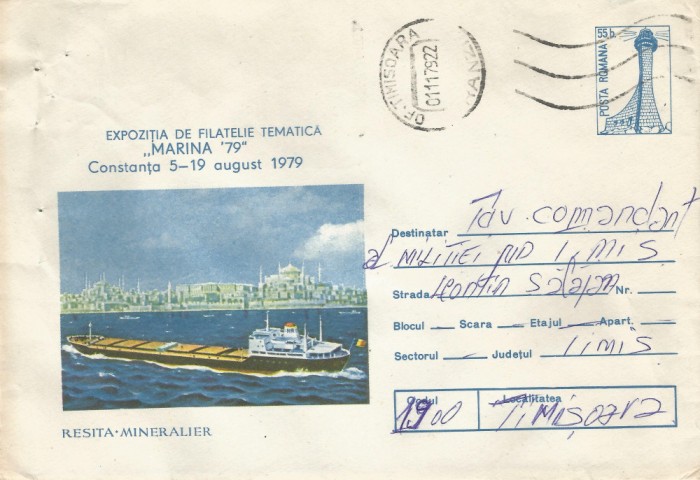 OF. TIMISOARA
01117922
TRANZIT
55 b.
POSTA ROMANA
EXPOZIȚIA DE FILATELIE TEMATICĂ
„MARINA '79"
Constanța 5–19 august 1979
Destinatar Tov. comandant
al MILITIEI JUD TIMIS
Strada Leontin Sălăjan Nr.
Blocul Scara Etajul Apart.
Sectorul Județul TIMIS
Codul Localitatea
1900 TIMIȘOARA
RESITA · MINERALIER